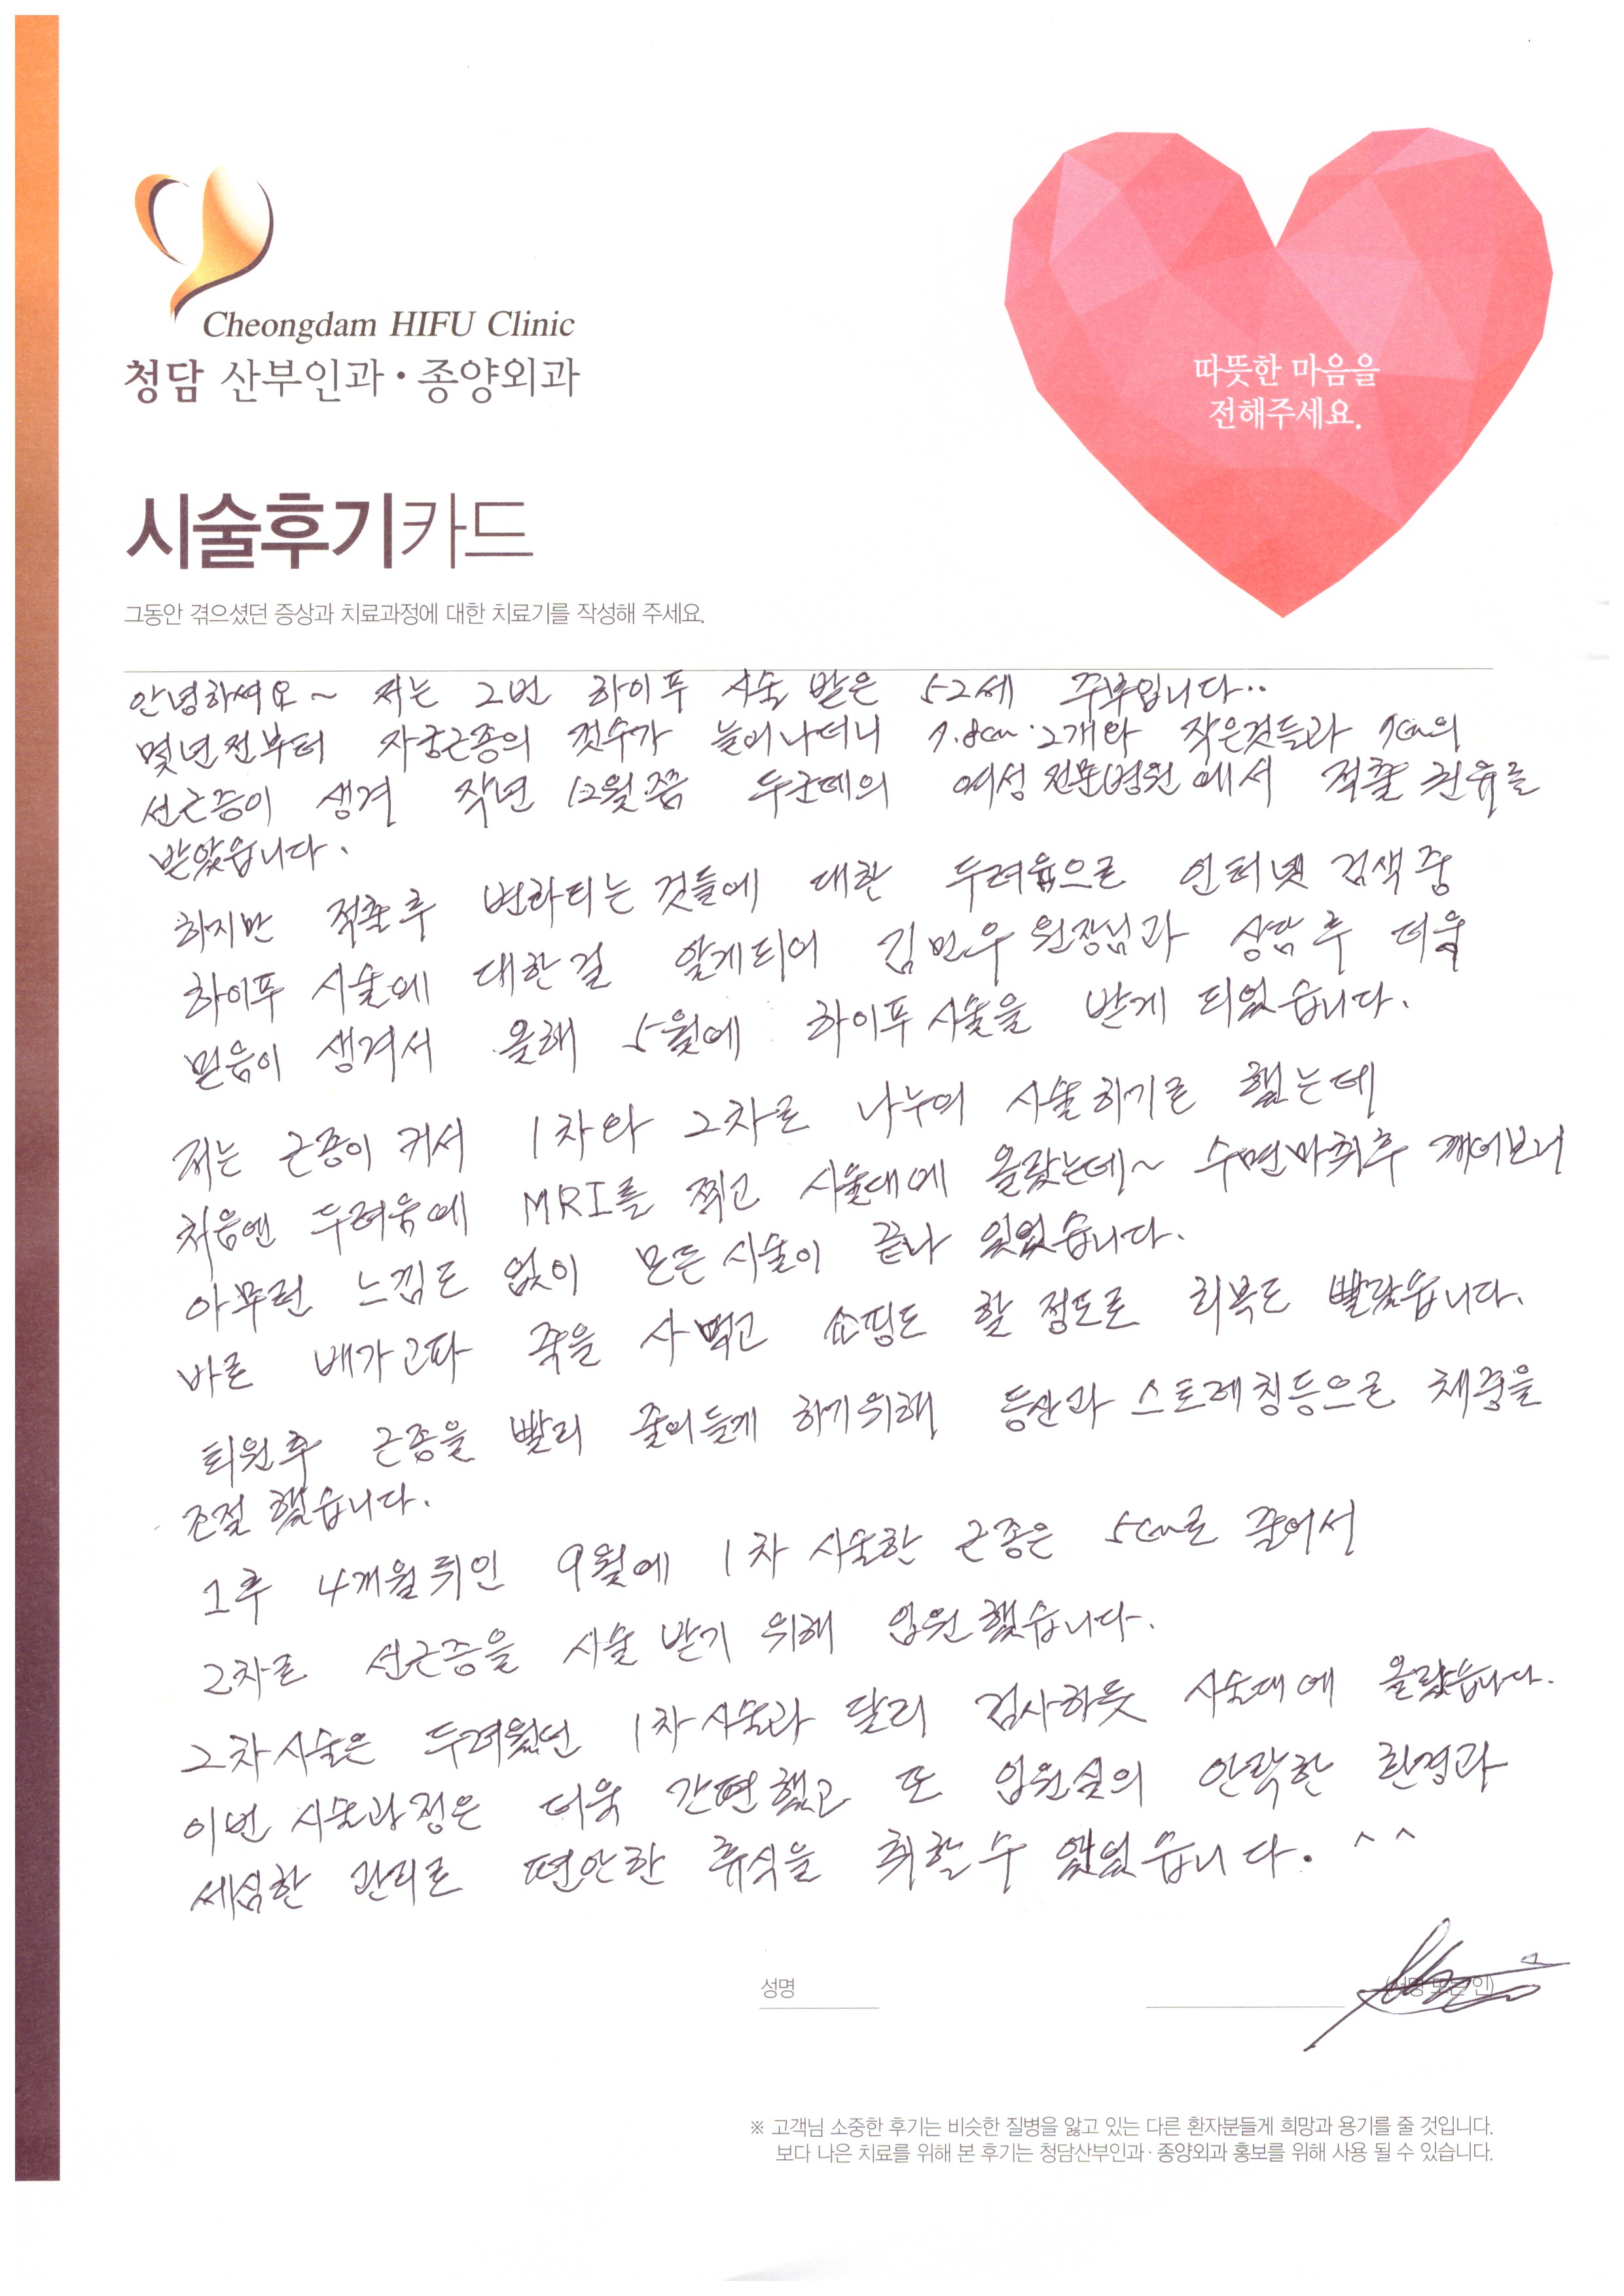 Cheongdam HIFU Clinic
청담 산부인과·종양외과
따뜻한 마음을
전해주세요.
시술후기카드
그동안 겪으셨던 증상과 치료과정에 대한 치료기를 작성해 주세요.
안녕하셔요~ 저는 2번 하이푸 시술 받은 52세 주부입니다..
몇년전부터 자궁근종의 갯수가 늘어나더니 7.8cm·2개와 작은것들과 7cm의
선근증이 생겨 작년 12월쯤 두군데의 여성전문병원에서 적출 권유를
받았읍니다.
하지만 적출후 변화되는 것들에 대한 두려움으로 인터넷 검색중
하이푸 시술에 대한걸 알게되어 김민우 원장님과 상담후 더욱
믿음이 생겨서 올해 5월에 하이푸 시술을 받게 되었습니다.
저는 근종이 커서 1차와 2차로 나누어 시술하기로 했는데
처음엔 두려움에 MRI를 찍고 시술대에 올랐는데~ 수면마취후 깨어보니
아무런 느낌도 없이 모든 시술이 끝나 있었습니다.
바로 배가고파 죽을 사먹고 쇼핑도 할 정도로 회복도 빨랐읍니다.
퇴원후 근종을 빨리 줄어들게 하기위해 등산과 스트레칭등으로 체중을
조절 했습니다.
그후 4개월뒤인 9월에 1차 시술한 근종은 5cm로 줄어서
2차로 선근증을 시술 받기 위해 입원했습니다.
2차시술은 두려웠던 1차시술과 달리 검사하듯 시술대에 올랐습니다.
이번 시술과정은 더욱 간편했고 또 입원실의 안락한 환경과
세심한 관리로 편안한 휴식을 취할수 있었읍니다. ^^
성명
※ 고객님 소중한 후기는 비슷한 질병을 앓고 있는 다른 환자분들게 희망과 용기를 줄 것입니다.
보다 나은 치료를 위해 본 후기는 청담산부인과·종양외과 홍보를 위해 사용 될 수 있습니다.